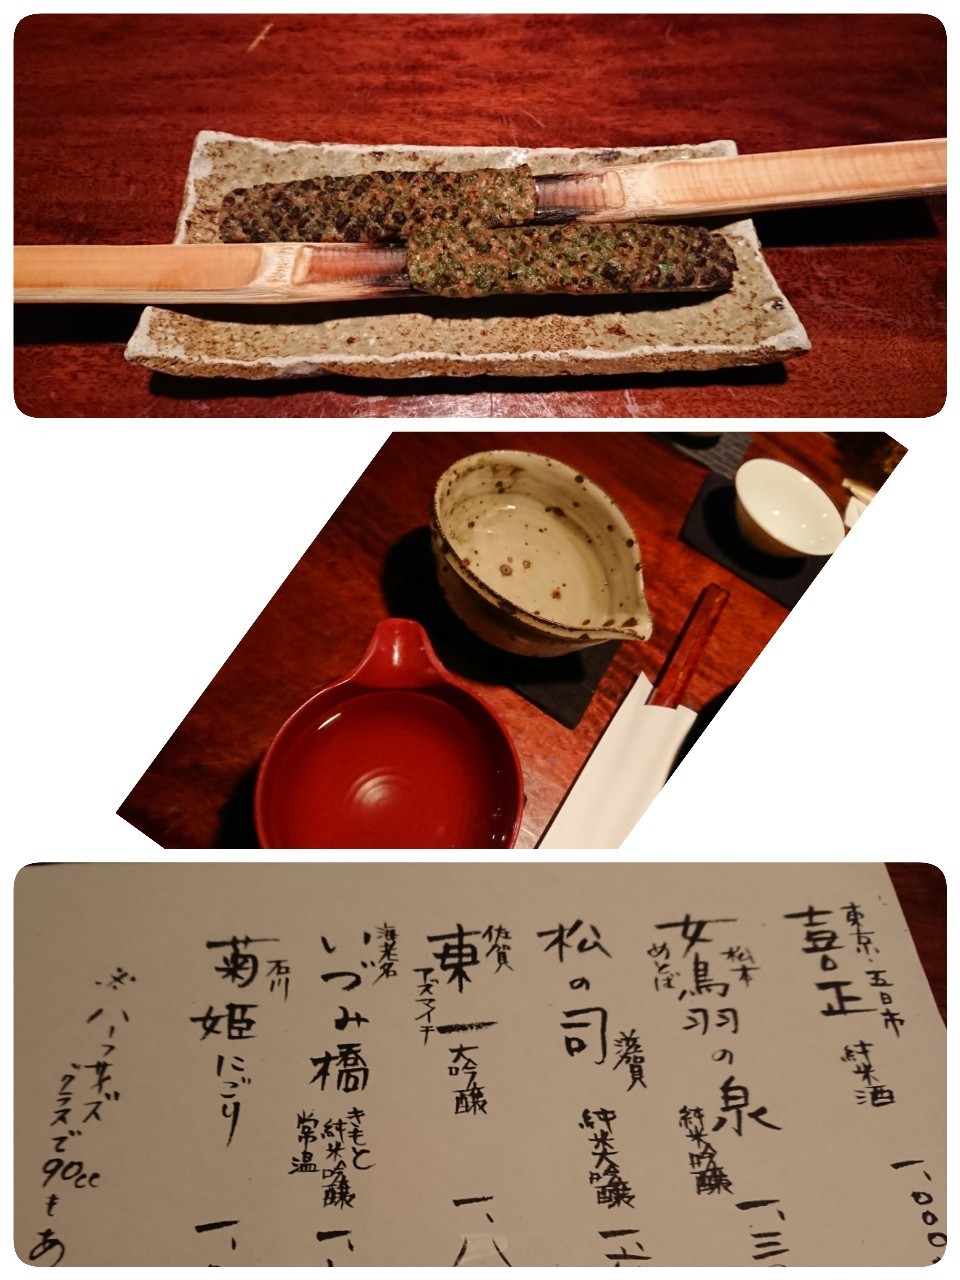 東京・五日市
喜正
純米酒
一、000
松本
女鳥羽の泉
めとば
純米吟醸
一、三
松の司
滋賀
純米大吟醸
一、
佐賀
東一
アズマイチ
大吟醸
一、八
海老名
いづみ橋
きもと
純米吟醸
常温
一、
石川
菊姫にごり
一、
※ハーフサイズ
グラスで90ccもあ